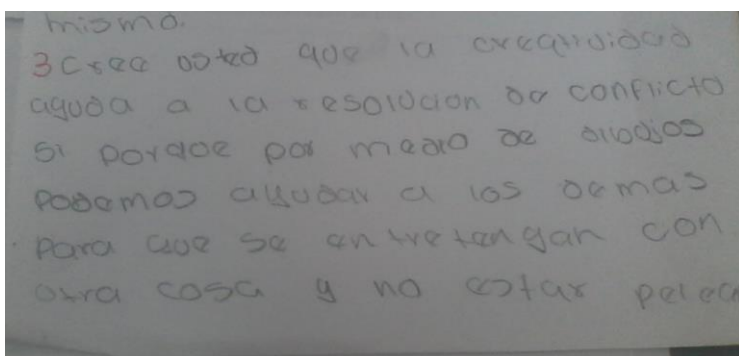 mismo.
3 Cree osted que la creatividad
aguda a la resolucion de conflicto
si porque por medio de dibojos
podemos ayudar a los demas
para que se entretengan con
otra cosa y no estar pelea